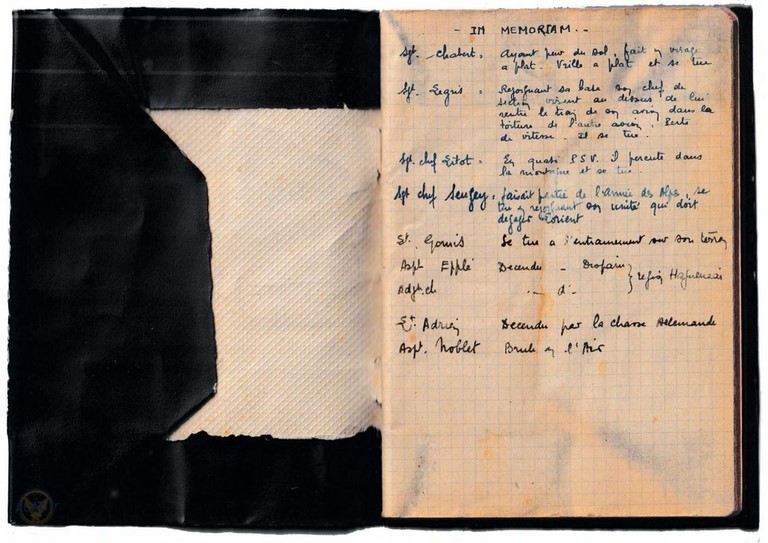 - IN MEMORIAM. -
Sgt. Chabert = Ayant peur du sol, fait un virage
a plat. Vrille a plat et se tue
Sgt. Legris = Rejoignant sa base son chef de
section virant au dessus de lui
rentre le train de son avion dans la
de l'autre avion. Perte
de vitesse. Il se tue.
Sgt. chef Litot = En quasi P.S.V. Il percute dans
la montagne et se tue.
Sgt chef Seugey, faisait partie de l'armée des Alpes, se
tue en rejoignant son unité qui doit
degager Lorient
St. Gomis Se tue a l'entrainement sur son terrain
Aspt Epplé Decendu - Disparu
Adgt. ch - d° - } region Haguenau
Lt. Adrien Decendu par la chasse Allemande
Aspt. Noblet Brule en l'Air